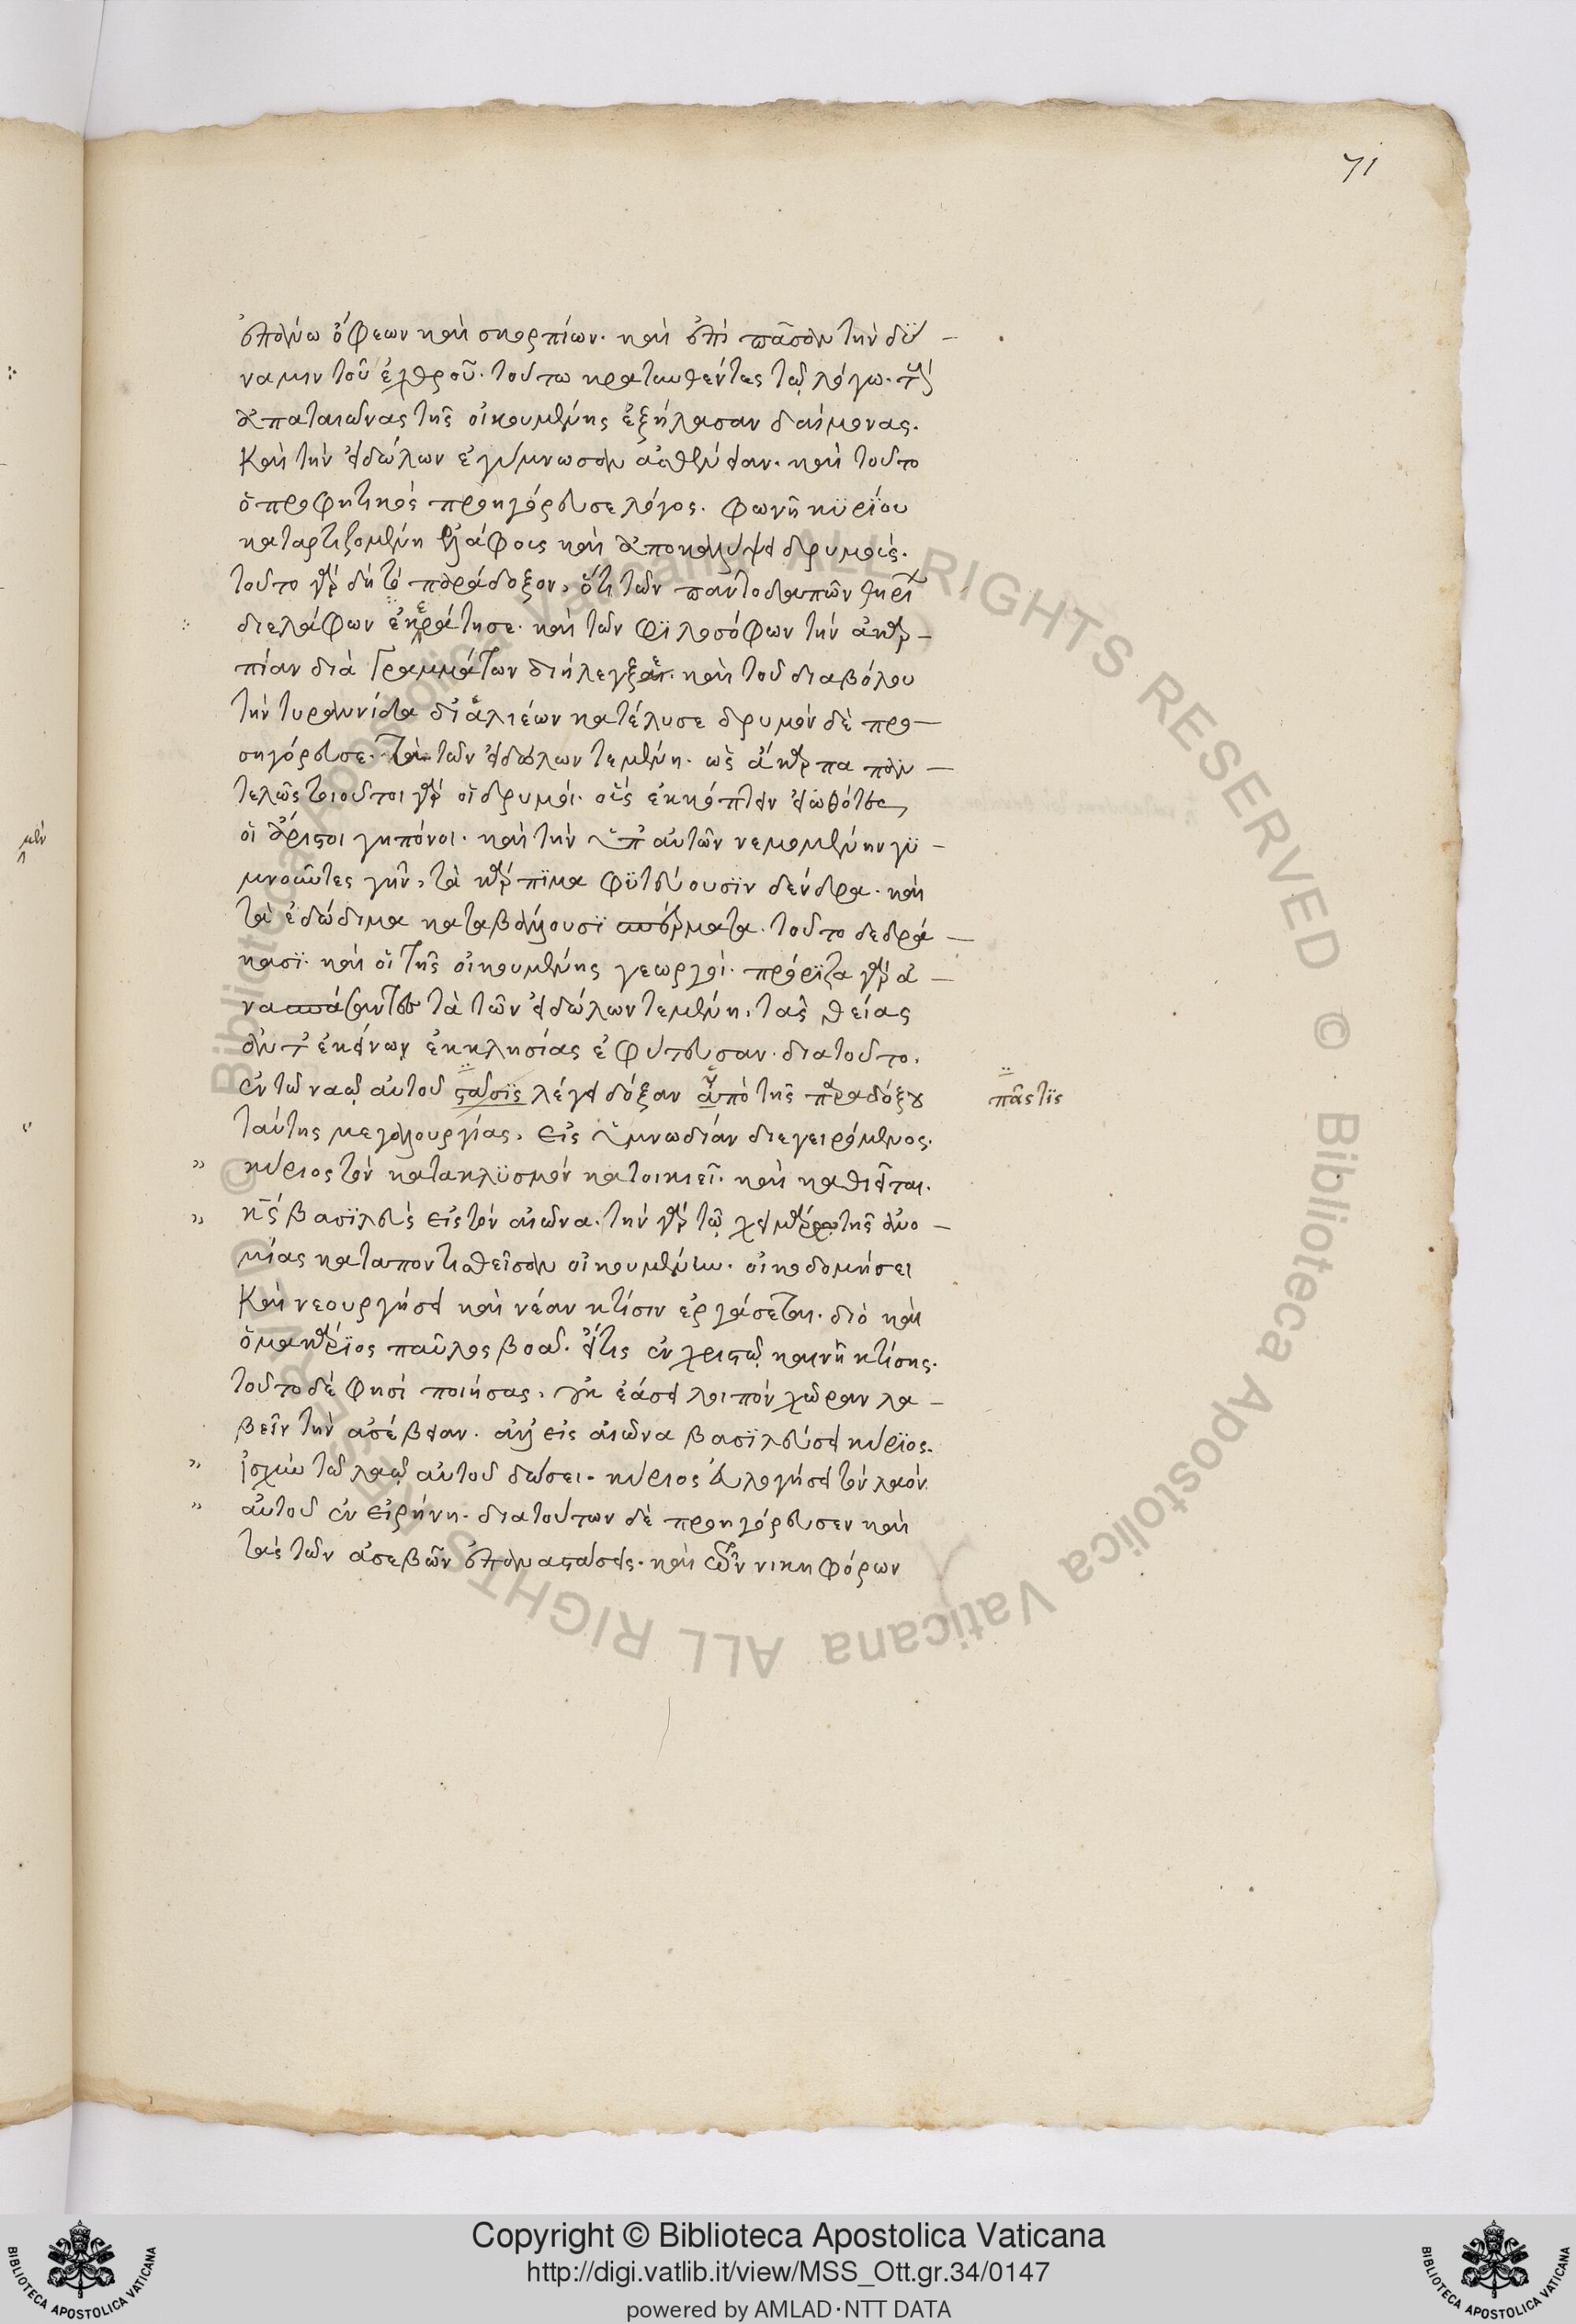 71
ἐπάνω ὄφεων καὶ σκορπίων. καὶ ἐπὶ πᾶσαν τὴν δύ -
ναμιν τοῦ ἐχθροῦ. τούτω κρατυνθέντες τῷ λόγω. τοὺς
ἀπατεῶνας τῆς οἰκουμένης ἐξήλασαν δαίμονας.
Καὶ τὴν εἰδώλων ἐγύμνωσαν ἀσθένειαν. καὶ τοῦτο
ὁ προφητικὸς προηγόρευσε λόγος. φωνὴ κϋρΐου
καταρτιζομένη ἐλάφοις καὶ ἀποκαλύψει δρυμοὺς.
τοῦτο γὰρ δὴ τὸ παράδοξον, ὅτι τῶν παντοδαπῶν θηρί
δι ελάφων ἐκράτησε. καὶ τῶν φϊλοσόφων τὴν
διὰ Γραμμάτων διήλεγξε. καὶ τοῦ διαβόλου
τὴν τυραννίδα δι ἁλιέων κατέλυσε δρυμὸν δὲ προ—
σηγόρευσε. τὰ τῶν εἰδώλων τεμένη. ὡς ἄκαρπα παν —
τελῶς τοιοῦτοι γὰρ οἱ δρυμοί. οὓς ἐκκόπτειν εἰωθότες
οἱ ἄριστοι γηπόνοι. καὶ τὴν ὑπ αὐτῶν νεμομένην γϋ -
μνοῦντες γῆν, τὰ κάρπϊμα φϋτεύουσϊν δένδρα. καὶ
τὰ ἐδώδιμα καταβάλλουσϊ σπέρματα. τοῦτο δεδρά —
κασϊ. καὶ οἱ τῆς οἰκουμένης γεωργοί. πρόρϊζα γὰρ ἀ —
νασπάσαντες τὰ τῶν εἰδώλων τεμένη, τὰς θείας
ἀντ ἐκείνων ἐκκλησίας ἐφύτευσαν. διατοῦτο.
ἐν τῶ ναῷ αὐτοῦ λέγει δόξαν ὑπὸ τῆς παραδόξου
πᾶς τϊς
ταύτης μεγαλουργίας, εἰς ὑμνωδίαν διεγειρόμενος.
" κύριος τὸν κατακλϋσμὸν κατοικιεῖ. καὶ καθιεῖται.
" κ̅ς βασϊλεὺς εἰς τὸν αἰῶνα. τὴν γὰρ τῷ τῆς ἀνο —
μίας καταποντισθεῖσαν οἰκουμένην. οἰκοδομήσει
Καὶ νεουργήσει καὶ νέαν κτίσιν ἐργάσεται. διὸ καὶ
ὁ μακάρϊος παῦλος βοᾶ. εἴ τις ἐν χριστῷ καινὴ κτίσις.
τοῦτο δέ φησί ποιήσας, οὐκ ἐάσει λοιπὸν χῶραν λα —
βεῖν τὴν ἀσέβειαν. ἀλλ εἰς αἰῶνα βασϊλεύσει κύρϊος.
" ἰσχὺν τῶ λαῷ αὐτοῦ δώσει. κύριος εὐλογήσει τὸν λαὸν
" αὐτοῦ ἐν εἰρήνη. διατούτων δὲ προηγόρευσεν καὶ
τὰς τῶν ἀσεβῶν ἐπαναστάσεις. καὶ τῶν νικηφόρων
Copyright © Biblioteca Apostolica Vaticana
http://digi.vatlib.it/view/MSS_Ott.gr.34/0147
powered by AMLAD·NTT DATA